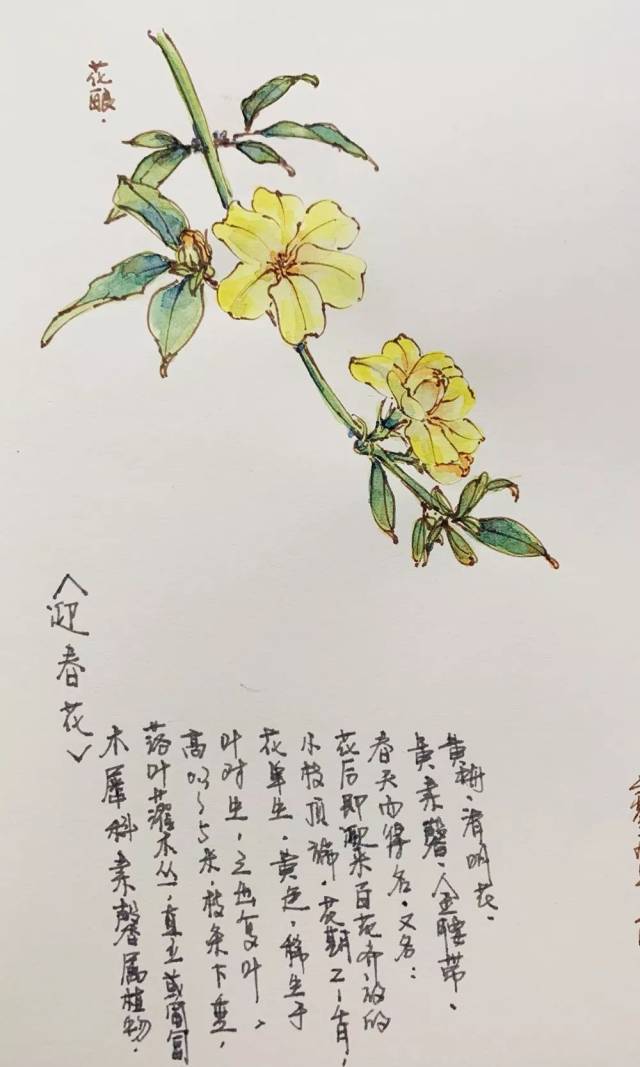 花酿.
《迎春花》
木犀科素馨属植物.
落叶灌木丛,直立或匍匐
高0.3~5米,枝条下垂,
叶对生,三出复叶,
花单生,黄色,稀生于
小枝顶端,花期2-4月,
花后即迎来百花齐放的
春天而得名.又名:
黄素馨、金腰带、
黄梅、清明花、